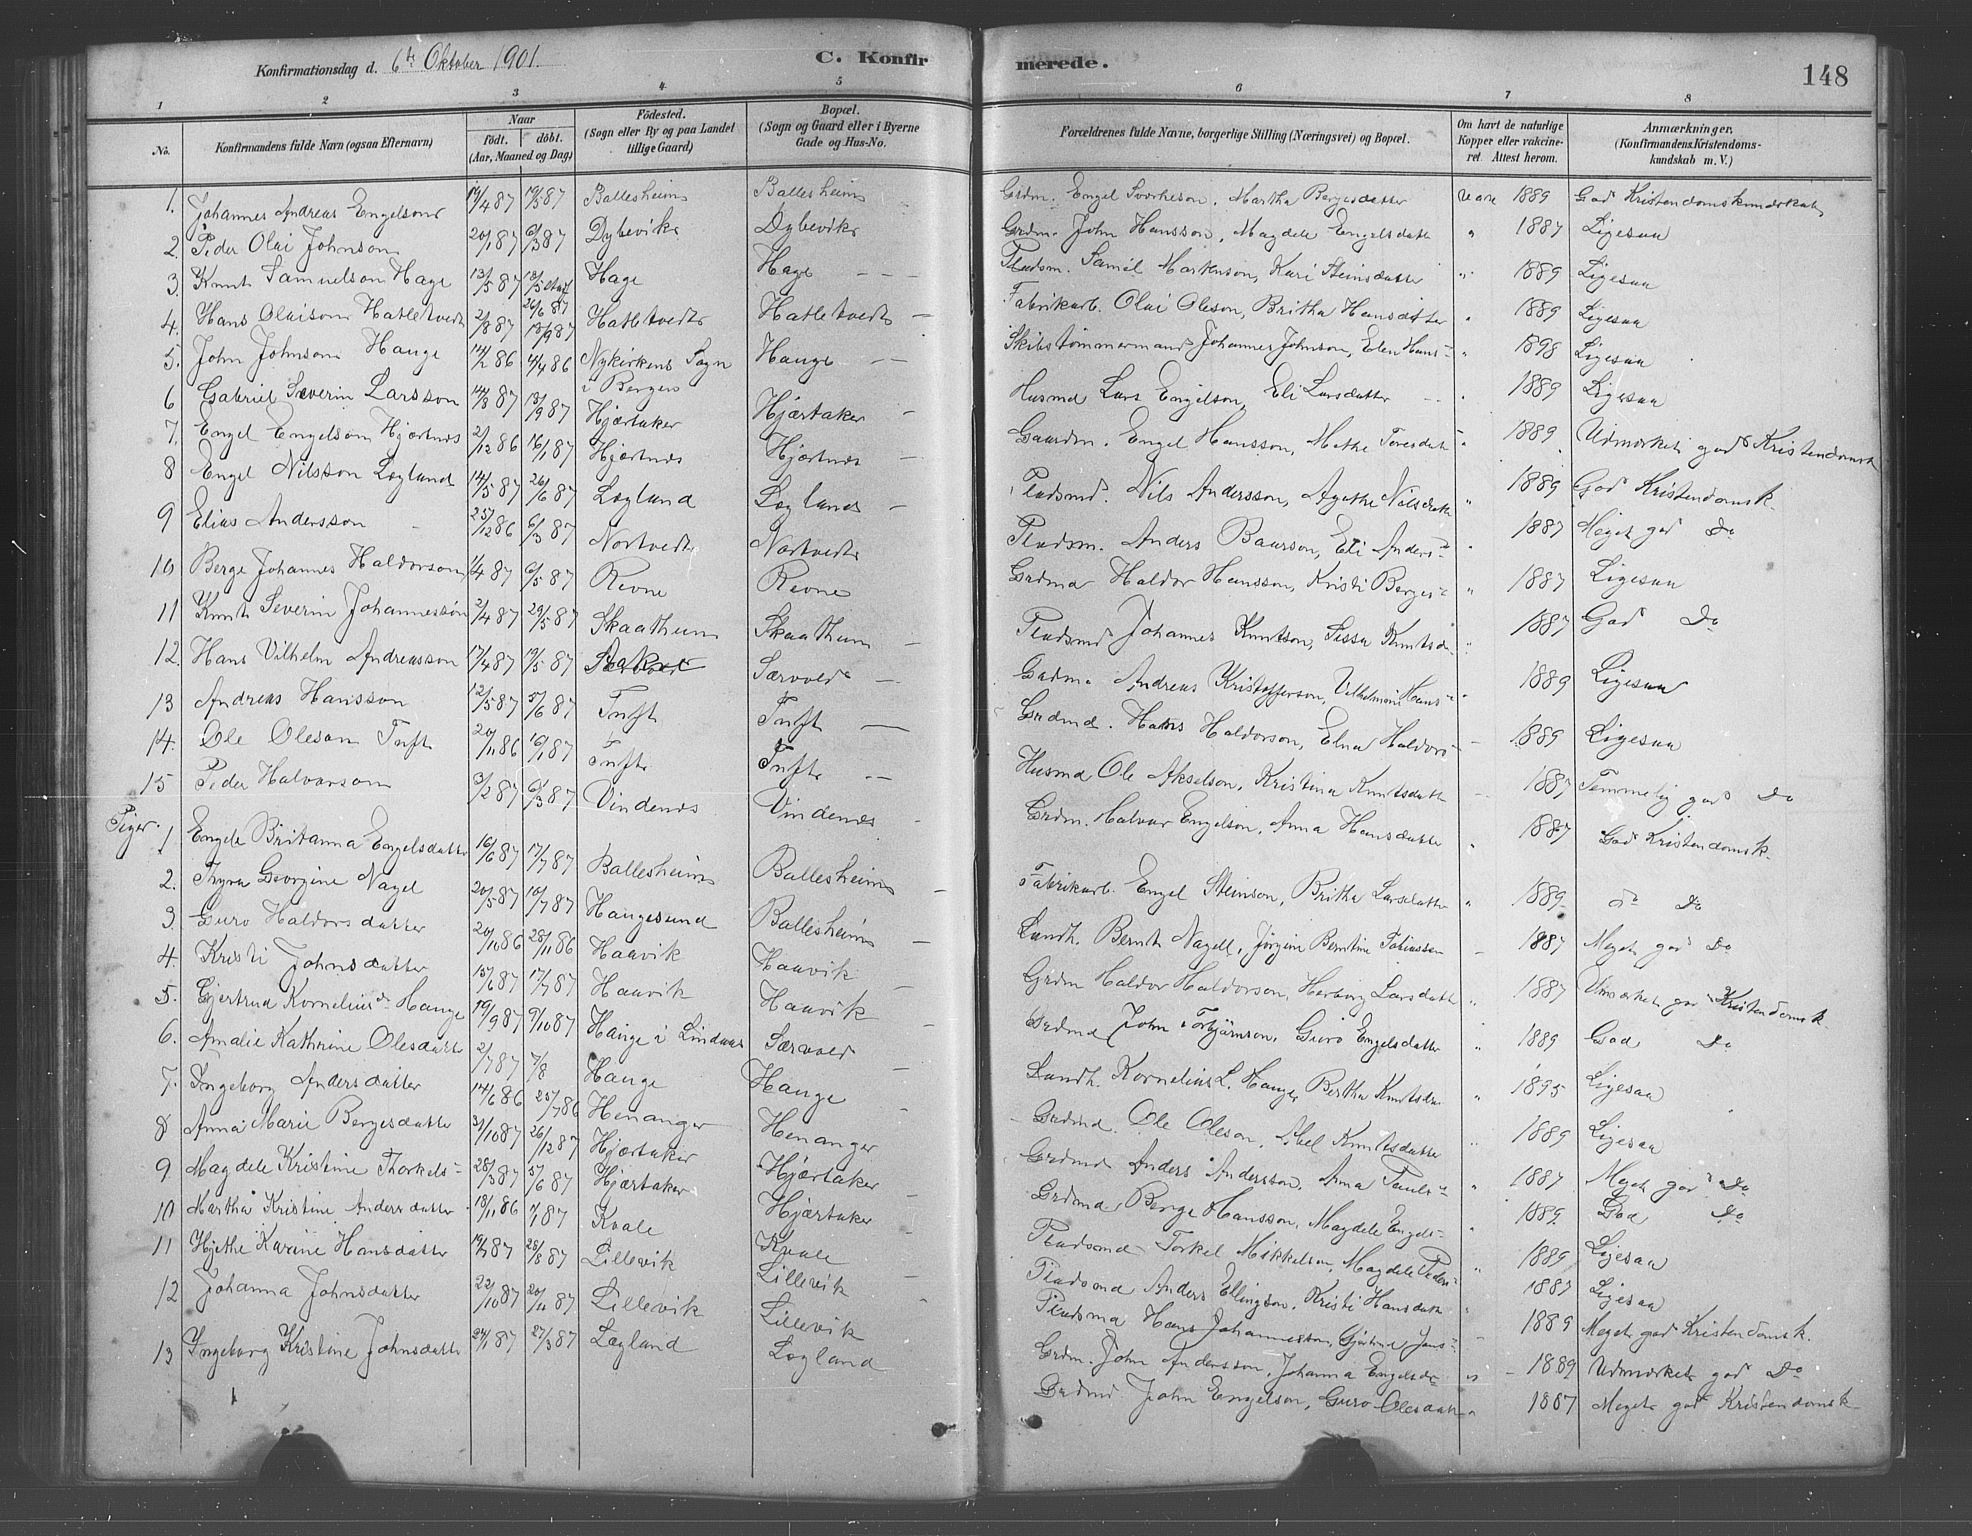 Konfirmationsdag d. 6te Oktober 1901. C. Konfirmerede. 148
1 2 3 4 5 6 7 8
No. Konfirmandens fulde Navn (ogsaa Efternavn) Naar født. døbt. (Aar, Maaned og Dag) Fødested. (Sogn eller By og paa Landet tillige Gaard) Bopæl. (Sogn og Gaard eller i Byerne Gade og Hus-No. Forældrenes fulde Navne, borgerlige Stilling (Næringsvei) og Bopæl. Om havt de naturlige Kopper eller vaccineret. Attest herom. Anmærkninger. (Konfirmandens Kristendomskundskab m. V.)
1. Johannes Andreas Engelson 19/4 87 19/5 87 Ballesheim Ballesheim Grdm. Engel Sverkeson, Martha Bergesdatter vacc 1889 God Kristendomskundskab
2. Peder Olai Johnson 20/1 87 6/3 87 Dybevik Dybevik Grdm. John Hansson, Magdele Engelsdatt " 1887 Ligesaa
3. Knut Samuelson Hage 13/5 87 Hage Hage Pladsm. Samuel Markuson, Kari Steinsdatter " 1889 Ligesaa
4. Hans Olaison Hatletvedt 2/8 87 18/9 87 Hatletvedt Hatletvedt Fabrikarb. Olai Oleson, Britha Hansdatter " 1889 Ligesaa
5. John Johnson Hauge 14/2 86 4/4 86 Nykirkens Sogn i Bergen Hauge Skibstømmermand Johannes Johnson, Elen Hans- " 1898 Ligesaa
6 Gabriel Severin Larsson 14/8 87 13/9 87 Hjærtaker Hjærtaker Husmd Lars Engelson, Eli Larsdatter " 1889 Ligesaa
7. Engel Engelson Hjørtnes 2/12 86 16/1 87 Hjørtnes Hjørtnes Gaardm. Engel Hansson, Mette Toresdatt " 1889 Udmærket god Kristendomsk
8 Engel Nilsson Løgland 14/5 87 26/6 87 Løgland Løgland Pladsmd. Nils Andersson, Agathe Nilsdatt " 1889 God Kristendomsk.
9 Elias Andersson 25/12 86 6/3 87 Nortvedt Nortvedt Pladsm. Anders Baarson, Eli Anders- " 1887 Meget god Do
10 Berge Johannes Haldorson 1/4 87 6/5 87 Revne Revne Grdmd Haldor Hansson, Kristi Berges- " 1887 Ligesaa
11 Knut Severin Johannesson 2/4 87 29/5 87 Skaatheim Skaatheim Pladsmd Johannes Knutson, Sissa Knutsd- " 1887 God Do
12. Hans Vilhelm Andreasson 17/4 87 19/5 87 Særvold Grdm. Andreas Kristofferson, Vilhelmine Hans- " 1889 Ligesaa
13 Andreas Hansson 12/5 87 5/6 87 Tuft Tuft Grdmd. Hans Haldorson, Elna Haldors- 1889 Ligesaa
14. Ole Oleson Tuft 20/11 86 16/1 87 Tuft Tuft Husmd Ole Akselson, Kristina Knutsdatt 1887 Temmelig god Do
15 Peder Halvorson 3/2 87 6/3 87 Vindenes Vindenes Grdm. Halvor Engelson, Anna Hansdatter " 1887 God Kristendomsk.
Piger. 1 Engele Britanna Engelsdatter 16/6 87 17/7 87 Ballesheim Ballesheim Fabrikarb. Engel Steinson, Britha Larsdatter " 1889 Do Do
2. Thyra Georgine Nagel 20/5 87 10/7 87 Haugesund Ballesheim Landh. Bernt Nagell, Jørgine Berntine Tobiassen 1887 Meget god Do
3. Guro Haldorsdatter 20/10 86 28/11 86 Haavik Haavik Grdm Haldor Haldorson, Herborg Larsdatt " 1887 Udmærket god Kristendomsk.
4. Kristi Johnsdatter 15/6 87 17/7 87 Haavik Haavik Grdmd John Torbjørnson, Guro Engelsdatter " 1889 God Do
5. Gjertrud Kornelius- Hauge 19/9 87 9/10 87 Hauge i Lindaas Særvold Landh. Kornelius L. Hauge, Bertha Knutsda " 1895 Ligesaa
6. Amalie Kathrine Olesdatter 2/7 87 7/8 Hauge Hauge Grdmd. Ole Oleson, Abel Knutsdatter " 1889 Ligesaa
7. Ingeborg Andersdatter 14/6 86 25/7 86 Henanger Henanger Grdmd Anders Andersson, Anna Pauls- " 1887 Meget god Do
8 Anna Marie Bergesdatter 31/10 87 26/12 87 Hjærtaker Hjærtaker Grdmd Berge Hansson, Magdele Engels- " 1889 God Do
9 Magdele Kristine Thorkels- 28/3 87 5/6 87 Hjærtaker Hjærtaker Pladsmd Torkel Mikkelson, Magdele Peders- " 1889 Ligesaa
10 Martha Kristine Andersdatter 18/11 86 1/1 87 Kvale Kvale Pladsmd Anders Ellingson, Kristi Hansdatt " 1887 Ligesaa
11 Hjethe Karine Hansdatter 19/7 87 28/8 87 Lillevik Lillevik Pladsmd Hans Johannesson, Gjertrud Jans- 1889 Meget god Kristendomsk.
12 Johanna Johnsdatter 22/10 87 20/11 87 Lillevik Lillevik Grdm. John Andersson, Johanna Engelsd- " 1889 Udmærket god Do
13 Ingeborg Kristine Johnsdatter 24/1 87 27/3 87 Løgland Løgland Grdmd John Engelson, Guro Olesdatt " 1887 Meget god Kristendomsk